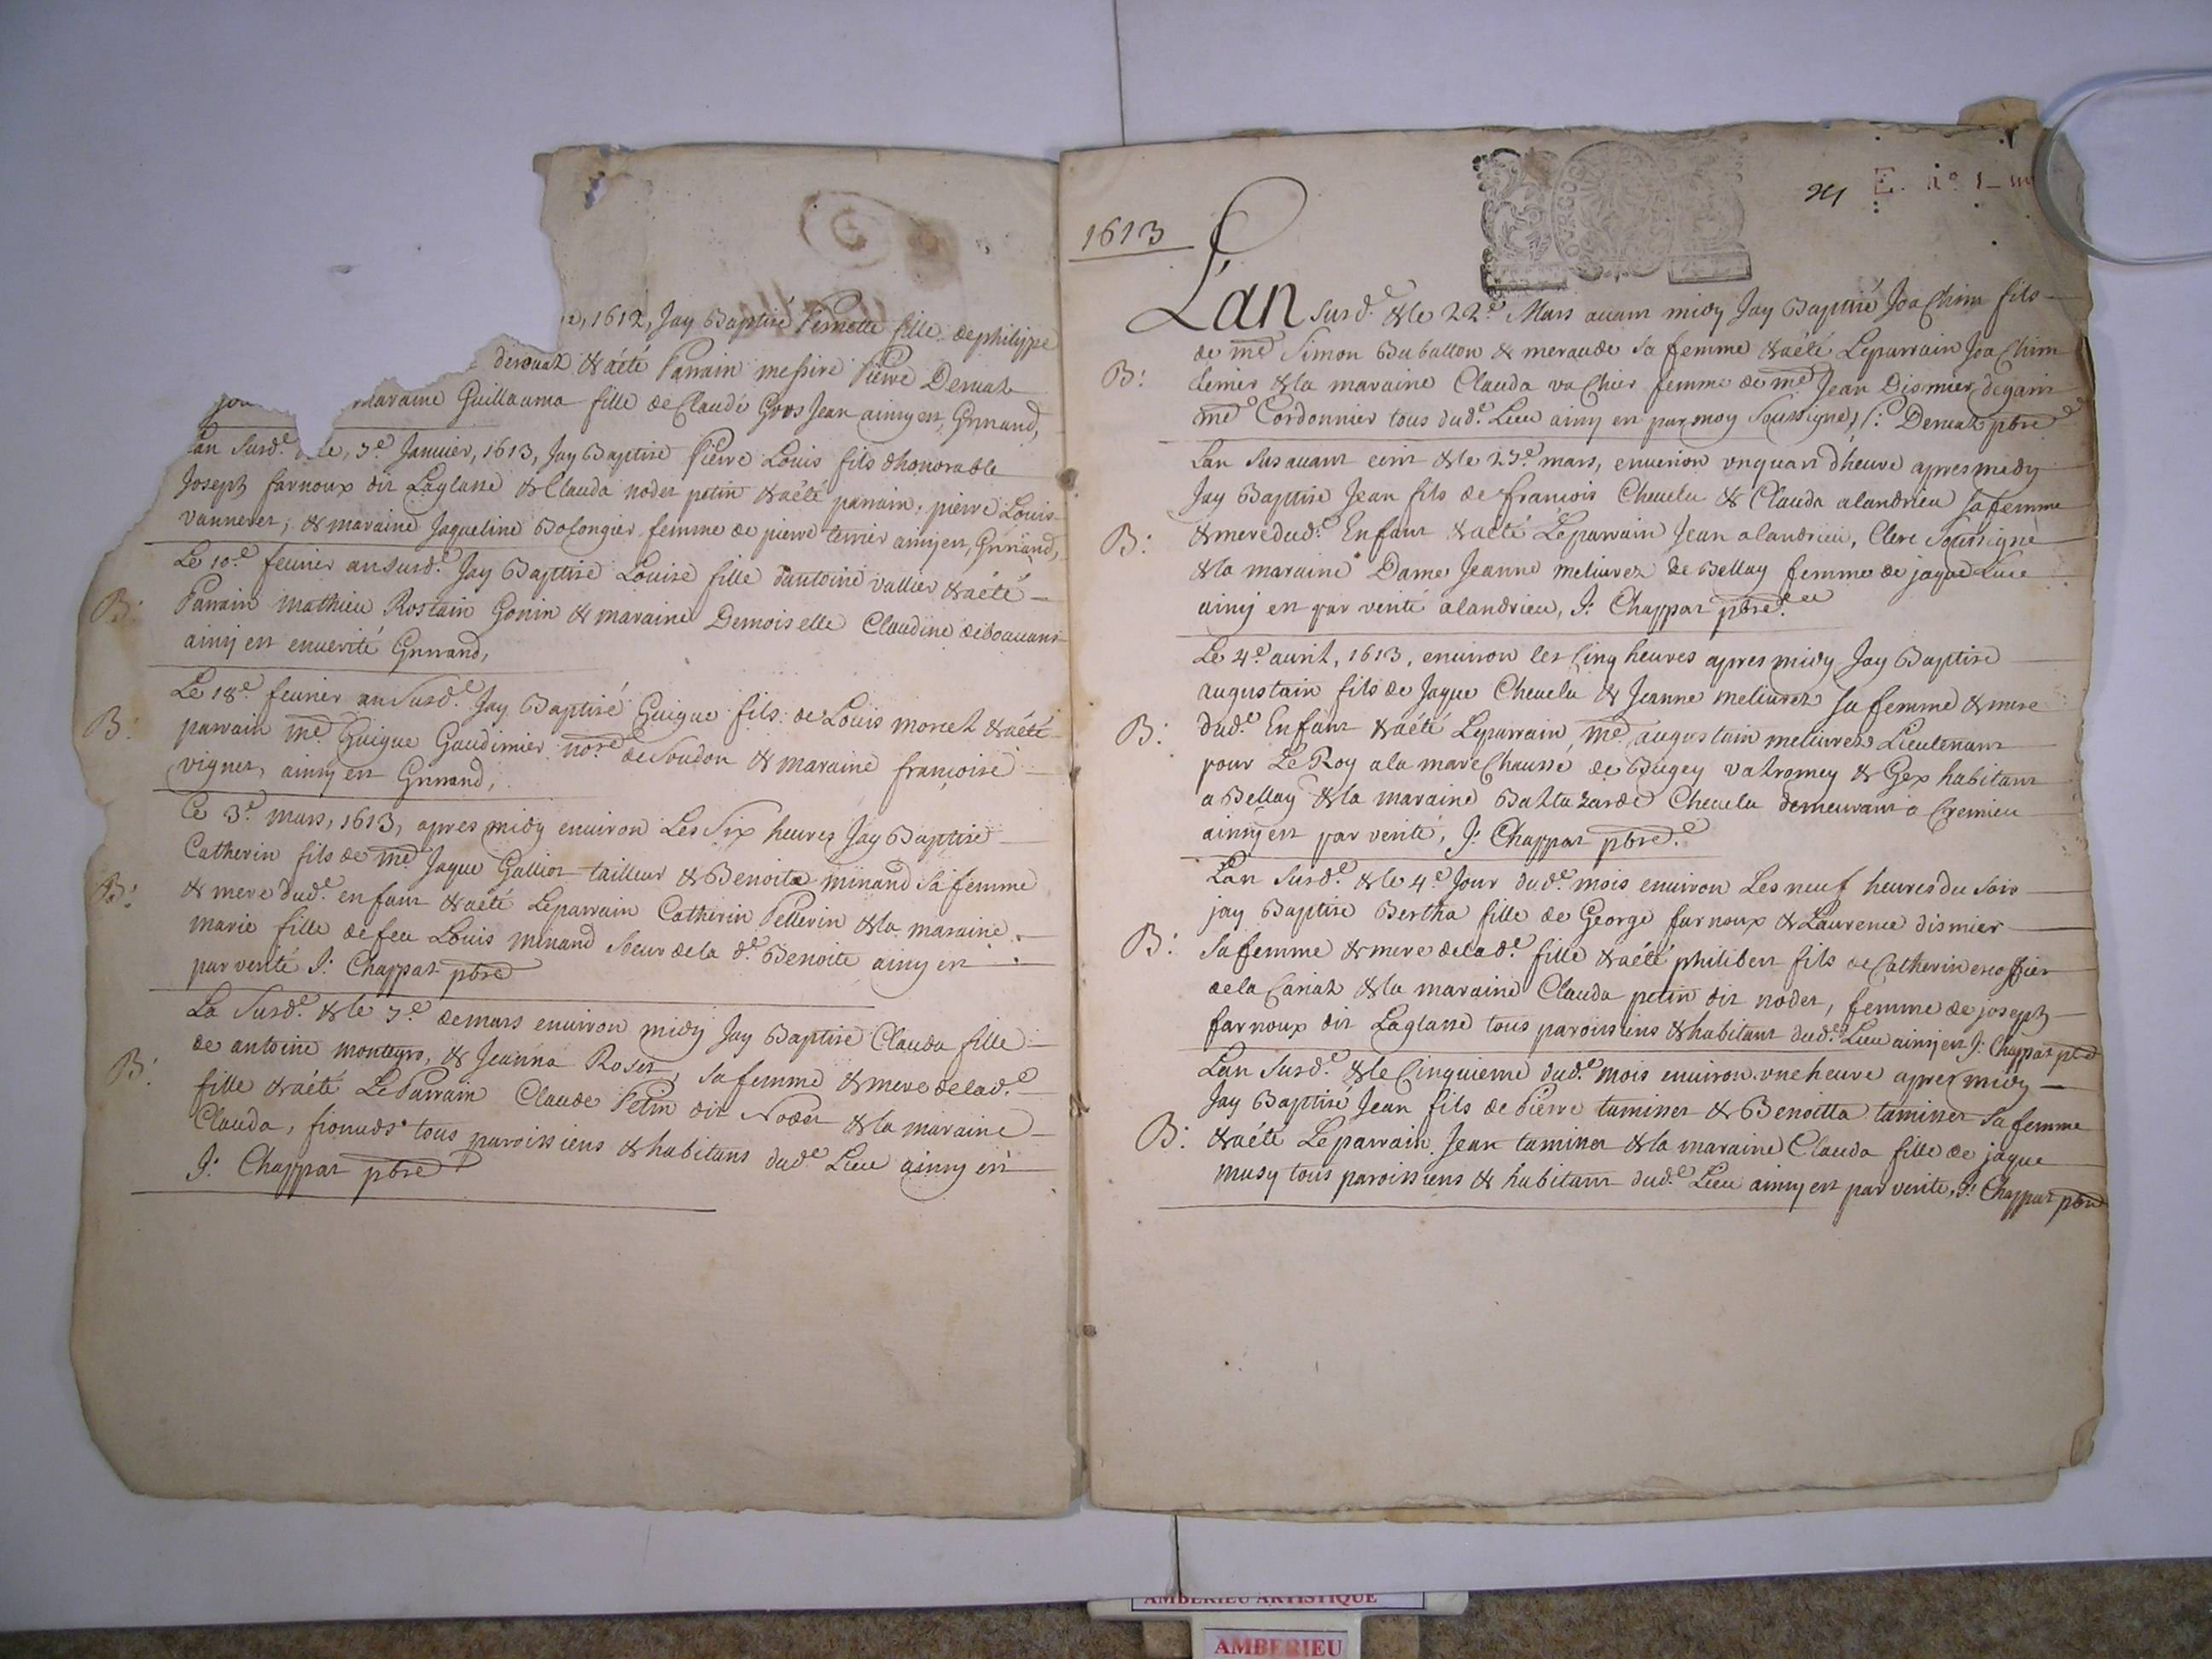 1612, Jay Baptisé Pernette fille de philippe
deruaz & a été Parrain messire Pierre Deruaz
maraine Guillauma fille de Claude Gros Jean ainsy est, Grinand,
Lan Susd.e le, 3.e Januier, 1613, Jay Baptisé Pierre Louis fils dhonorable
Joseph farnoux dit Laglasse & Clauda nodet petin & a été parrain, pierre Louis
vanneret, & maraine Jaqueline Bolongier femme de pierre ternier ainsy est, Grinand,
Le 10.e feurier an susd.e Jay Baptisé Louise fille dantoine vallier & a été
B: Parrain mathieu Rostain Gonin & maraine Demoiselle Claudine
ainsy est en uerité Grinand,
Le 18.e feurier an Susd.e Jay Baptisé Guigue fils de Louis moncet & a été
B: parrain m.e Guigue Gaudimier no.re de Soudon & maraine françoise
vignet, ainsy est Grinand,
Ce 3.e mars, 1613, apres midy enuiron Les Six heures Jay Baptisé
Catherin fils de m.e Jaque Galliot tailleur & Benoite minand Sa femme
B: & mere dud.e enfant & a été Le parrain Catherin Pellerin & la maraine
marie fille de feu Louis minand Soeur de la d.e Benoite ainsy est
par verité J: Chappaz pbre
La Susd.e & le 7.e de mars enuiron midy Jay Baptisé Clauda fille
de antoine monteyro, & Jeanna Roset, Sa femme & mere de lad.e
B: fille & a été Le Parrain Claude Petin dit Nodet & la maraine
Clauda, tous paroissiens & habitans dud.e Lieu ainsy est
J: Chappaz pbre
1613
24 E. n.o 1
L'an Susd.e & le 22.e Mars auant midy Jay Baptisé Joachim fils
de m.e Simon Baballon & meraude Sa femme & a été Le parrain Joachim
B: ternier & la maraine Clauda vachier femme de m.e Jean Dismier
m.e Cordonnier tous dud.e Lieu ainsy est par moy Soussigné, Deruaz pbre
Lan Sus auant ecrit & le 27.e mars, enuiron vn quart d'heure apres midy
Jay Baptisé Jean fils de francois Cheuelu & Clauda alandrieu Sa femme
B: & mere dud.e Enfant & a été Le parrain Jean alandrieu, Clerc Soussigné
& la maraine Dame Jeanne meliurez de Bellay femme de jaque
ainsy est par verité alandrieu, J: Chappaz pbre
Le 4.e auril, 1613, enuiron les Cinq heures apres midy Jay Baptisé
augustain fils de Jaque Cheuelu & Jeanne meliurez Sa femme & mere
B: dud.e Enfant & a été Le parrain, m.e augustain meliurez Lieutenant
pour Le Roy a la marechaussé de Bugey valromey & Gex habitant
a Bellay & la maraine Baltazarde Cheuelu demeurant a Cremieu
ainsy est par verité, J: Chappaz pbre
Lan Susd.e & le 4.e Jour dud.e mois enuiron Les neuf heures du Soir
jay Baptisé Bertha fille de George farnoux & Laurence dismier
B: Sa femme & mere de la d.e fille & a été philibert fils de Catherin escoffier
de la & la maraine Clauda petin dit nodet, femme de joseph
farnoux dit Laglasse tous paroissiens & habitant dud.e Lieu ainsy est J: Chappaz pbre
Lan Susd.e & le Cinquieme dud.e mois enuiron vne heure apres midy
Jay Baptisé Jean fils de Pierre tamisset & Benoitta tamisset Sa femme
B: & a été Le parrain Jean tamisset & la maraine Clauda fille de jaque
musy tous paroissiens & habitant dud.e Lieu ainsy est par verité, J: Chappaz pbre
AMBERIEU ARTISTIQUE
AMBERIEU